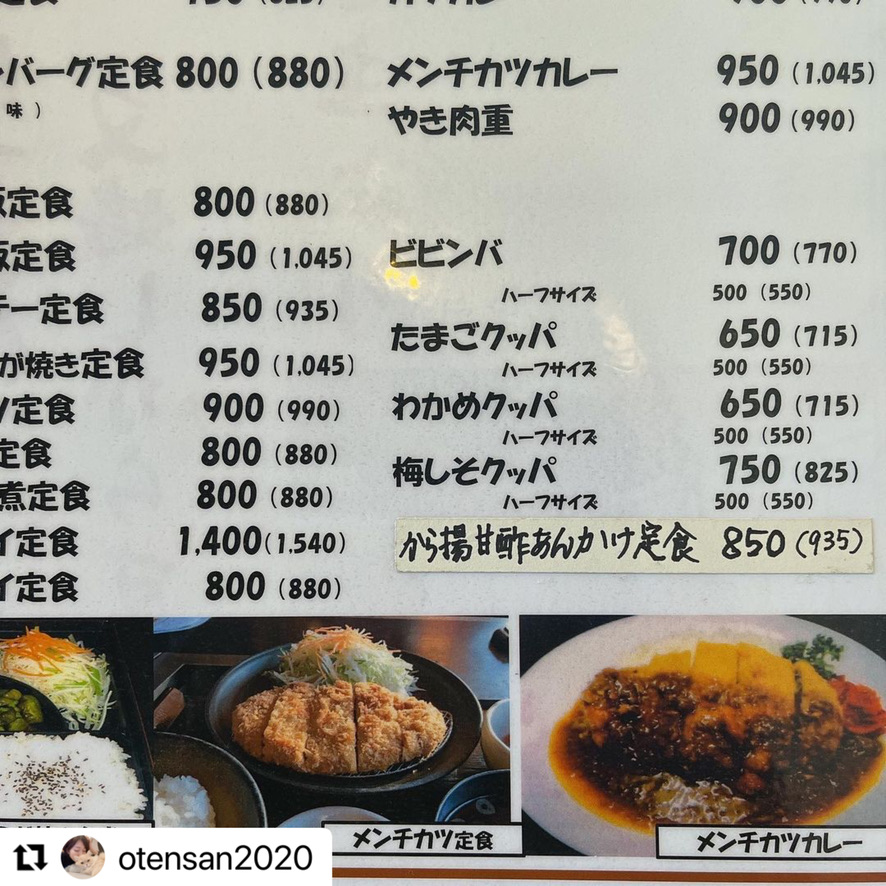 バーグ定食 800 (880)
味 )
定食 800 (880)
定食 950 (1,045)
テー定食 850 (935)
が焼き定食 950 (1,045)
定食 900 (990)
定食 800 (880)
煮定食 800 (880)
イ定食 1,400 (1,540)
イ定食 800 (880)
メンチカツカレー 950 (1,045)
やき肉重 900 (990)
ビビンバ 700 (770)
ハーフサイズ 500 (550)
たまごクッパ 650 (715)
ハーフサイズ 500 (550)
わかめクッパ 650 (715)
ハーフサイズ 500 (550)
梅しそクッパ 750 (825)
ハーフサイズ 500 (550)
から揚甘酢あんかけ定食 850 (935)
メンチカツ定食
メンチカツカレー
otensan2020